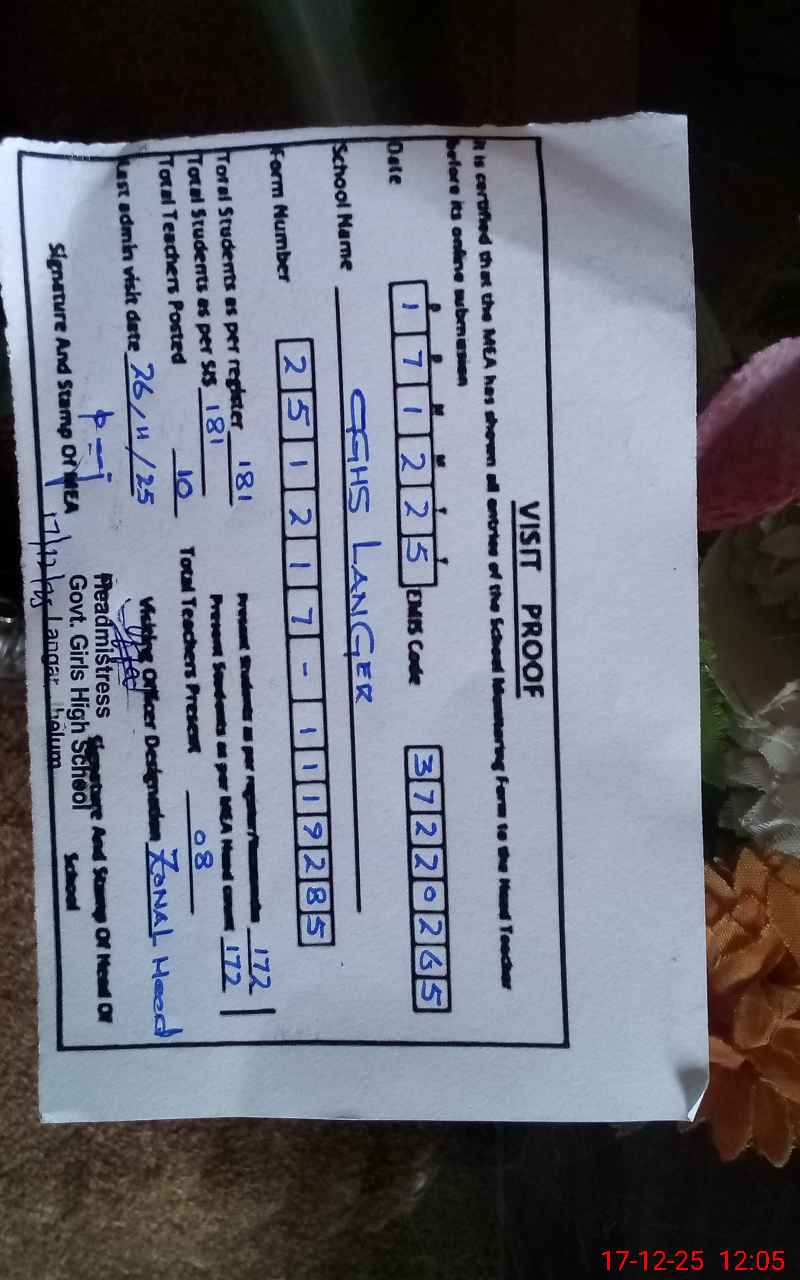 VISIT PROOF
It is certified that the MEA has shown all entries of the School Monitoring Form to the Head Teacher
before its online submission
D D M M Y Y
Date 1 7 1 2 2 5 EMIS Code 3 7 2 2 0 2 6 5
School Name GGHS LANGER
Form Number 2 5 1 2 1 7 - 1 1 1 9 2 8 5
Total Students as per register 181 Present Students as per register/ 172
Total Students as per SIS 181 Present Students as per MEA Head count 172
Total Teachers Posted 10 Total Teachers Present 08
Last admin visit date 26/11/25 Visiting Officer Designation ZONAL Head
Signature And Stamp Of MEA Signature And Stamp Of Head Of
School
Headmistress
Govt. Girls High School
Langar, Jhelum
17/12/25
17-12-25 12:05